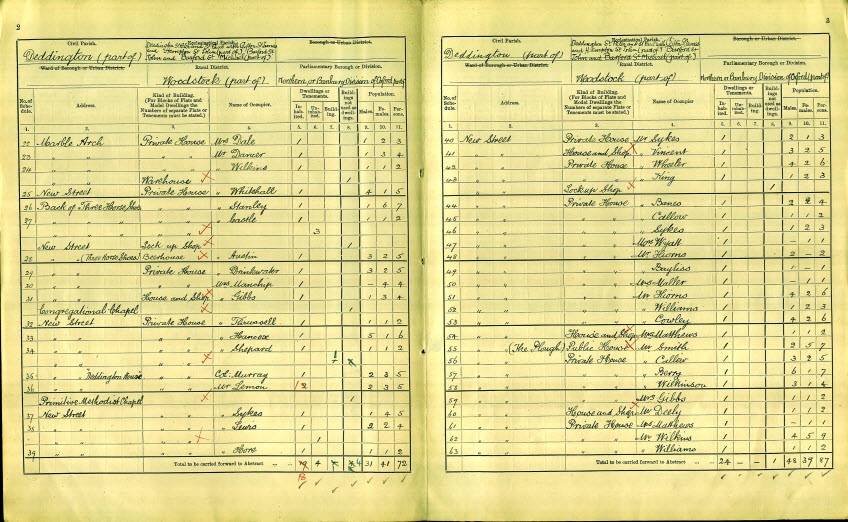 2
Civil Parish.
Deddington (part of)
Ward of Borough or Urban District.
Ecclesiastical Parish.
Borough or Urban District.
Rural District.
Woodstock (part of)
Parliamentary Borough or Division.
Northern or Banbury Division of Oxford (part of)
No. of Schedule.
Address.
Kind of Building. (For Blocks of Flats and Model Dwellings the Numbers of separate Flats or Tenements must be stated.)
Name of Occupier.
Dwellings or Tenements.
Inhabited.
Uninhabited.
Building.
Buildings not used as dwellings.
Population.
Males.
Females.
Persons.
1. 2. 3. 4. 5. 6. 7. 8. 9. 10. 11.
22 Marble Arch Private House Mrs Dale 1 1 2 3
23 " " " " Mr Dancer 1 1 3 4
24 " " " " " Wilkins 1 1 1 2
Warehouse 1
25 New Street Private House " Whitehall 1 4 1 5
26 Back of Three Horse Shoes " " " Stanley 1 1 6 7
27 " " " " " Castle 1 1 1 2
" " 3
New Street Lock up Shop 1
28 " (Three Horse Shoes) Beerhouse " Austin 1 3 2 5
29 " " Private House " Drinkwater 1 3 2 5
30 " " " " Mrs Manship 1 - 4 4
31 " " House and Shop " Gibbs 1 1 3 4
Congregational Chapel 1
32 New Street Private House " 1 1 1 2
33 " " " " " Hancox 1 5 1 6
34 " " " " " Shepard 1 1 1 2
35 " Deddington House " " Col. Murray 1 2 3 5
36 " " " " Mr Lemon 1 2 3 5
Primitive Methodist Chapel 1
37 New Street " " " Sykes 1 1 4 5
38 " " " " " Lewis 1 2 2 4
" " 1
39 " " " " " Hore 1 1 1 2
Total to be carried forward to Abstract 4 31 41 72
3
Civil Parish.
Deddington (part of)
Ward of Borough or Urban District.
Ecclesiastical Parish.
Borough or Urban District.
Rural District.
Woodstock (part of)
Parliamentary Borough or Division.
Northern or Banbury Division of Oxford (part of)
No. of Schedule.
Address.
Kind of Building. (For Blocks of Flats and Model Dwellings the Numbers of separate Flats or Tenements must be stated.)
Name of Occupier.
Dwellings or Tenements.
Inhabited.
Uninhabited.
Building.
Buildings not used as dwellings.
Population.
Males.
Females.
Persons.
1. 2. 3. 4. 5. 6. 7. 8. 9. 10. 11.
40 New Street Private House Mr Sykes 1 2 1 3
41 " " House and Shop " Vincent 1 3 2 5
42 " " Private House " Wheeler 1 4 2 6
43 " " " " " King 1 1 2 3
Lock up Shop 1
44 " " Private House " Banes 1 2 2 4
45 " " " " " Callow 1 1 1 2
46 " " " " " Sykes 1 1 2 3
47 " " " " Mrs Wyatt 1 - 1 1
48 " " " " Mr Hiorns 1 2 - 2
49 " " " " " Bayliss 1 1 - 1
50 " " " " Mrs Maller 1 - 1 1
51 " " " " Mr Hiorns 1 4 2 6
52 " " " " " Williams 1 1 2 3
53 " " " " " Cowley 1 4 2 6
54 " " House and Shop Mrs Matthews 1 1 1 2
55 " (The Plough) Public House Mr Smith 1 2 5 7
56 " " Private House " Callow 1 3 2 5
57 " " " " " Berry 1 6 1 7
58 " " " " " Wilkinson 1 3 1 4
59 " " " " Mrs Gibbs 1 1 1 2
60 " " House and Shop Mr Deely 1 1 1 2
61 " " Private House Mrs Matthews 1 - 1 1
62 " " " " Mr Wilkins 1 4 5 9
63 " " " " " Williams 1 1 1 2
Total to be carried forward to Abstract 24 - - 1 48 39 87